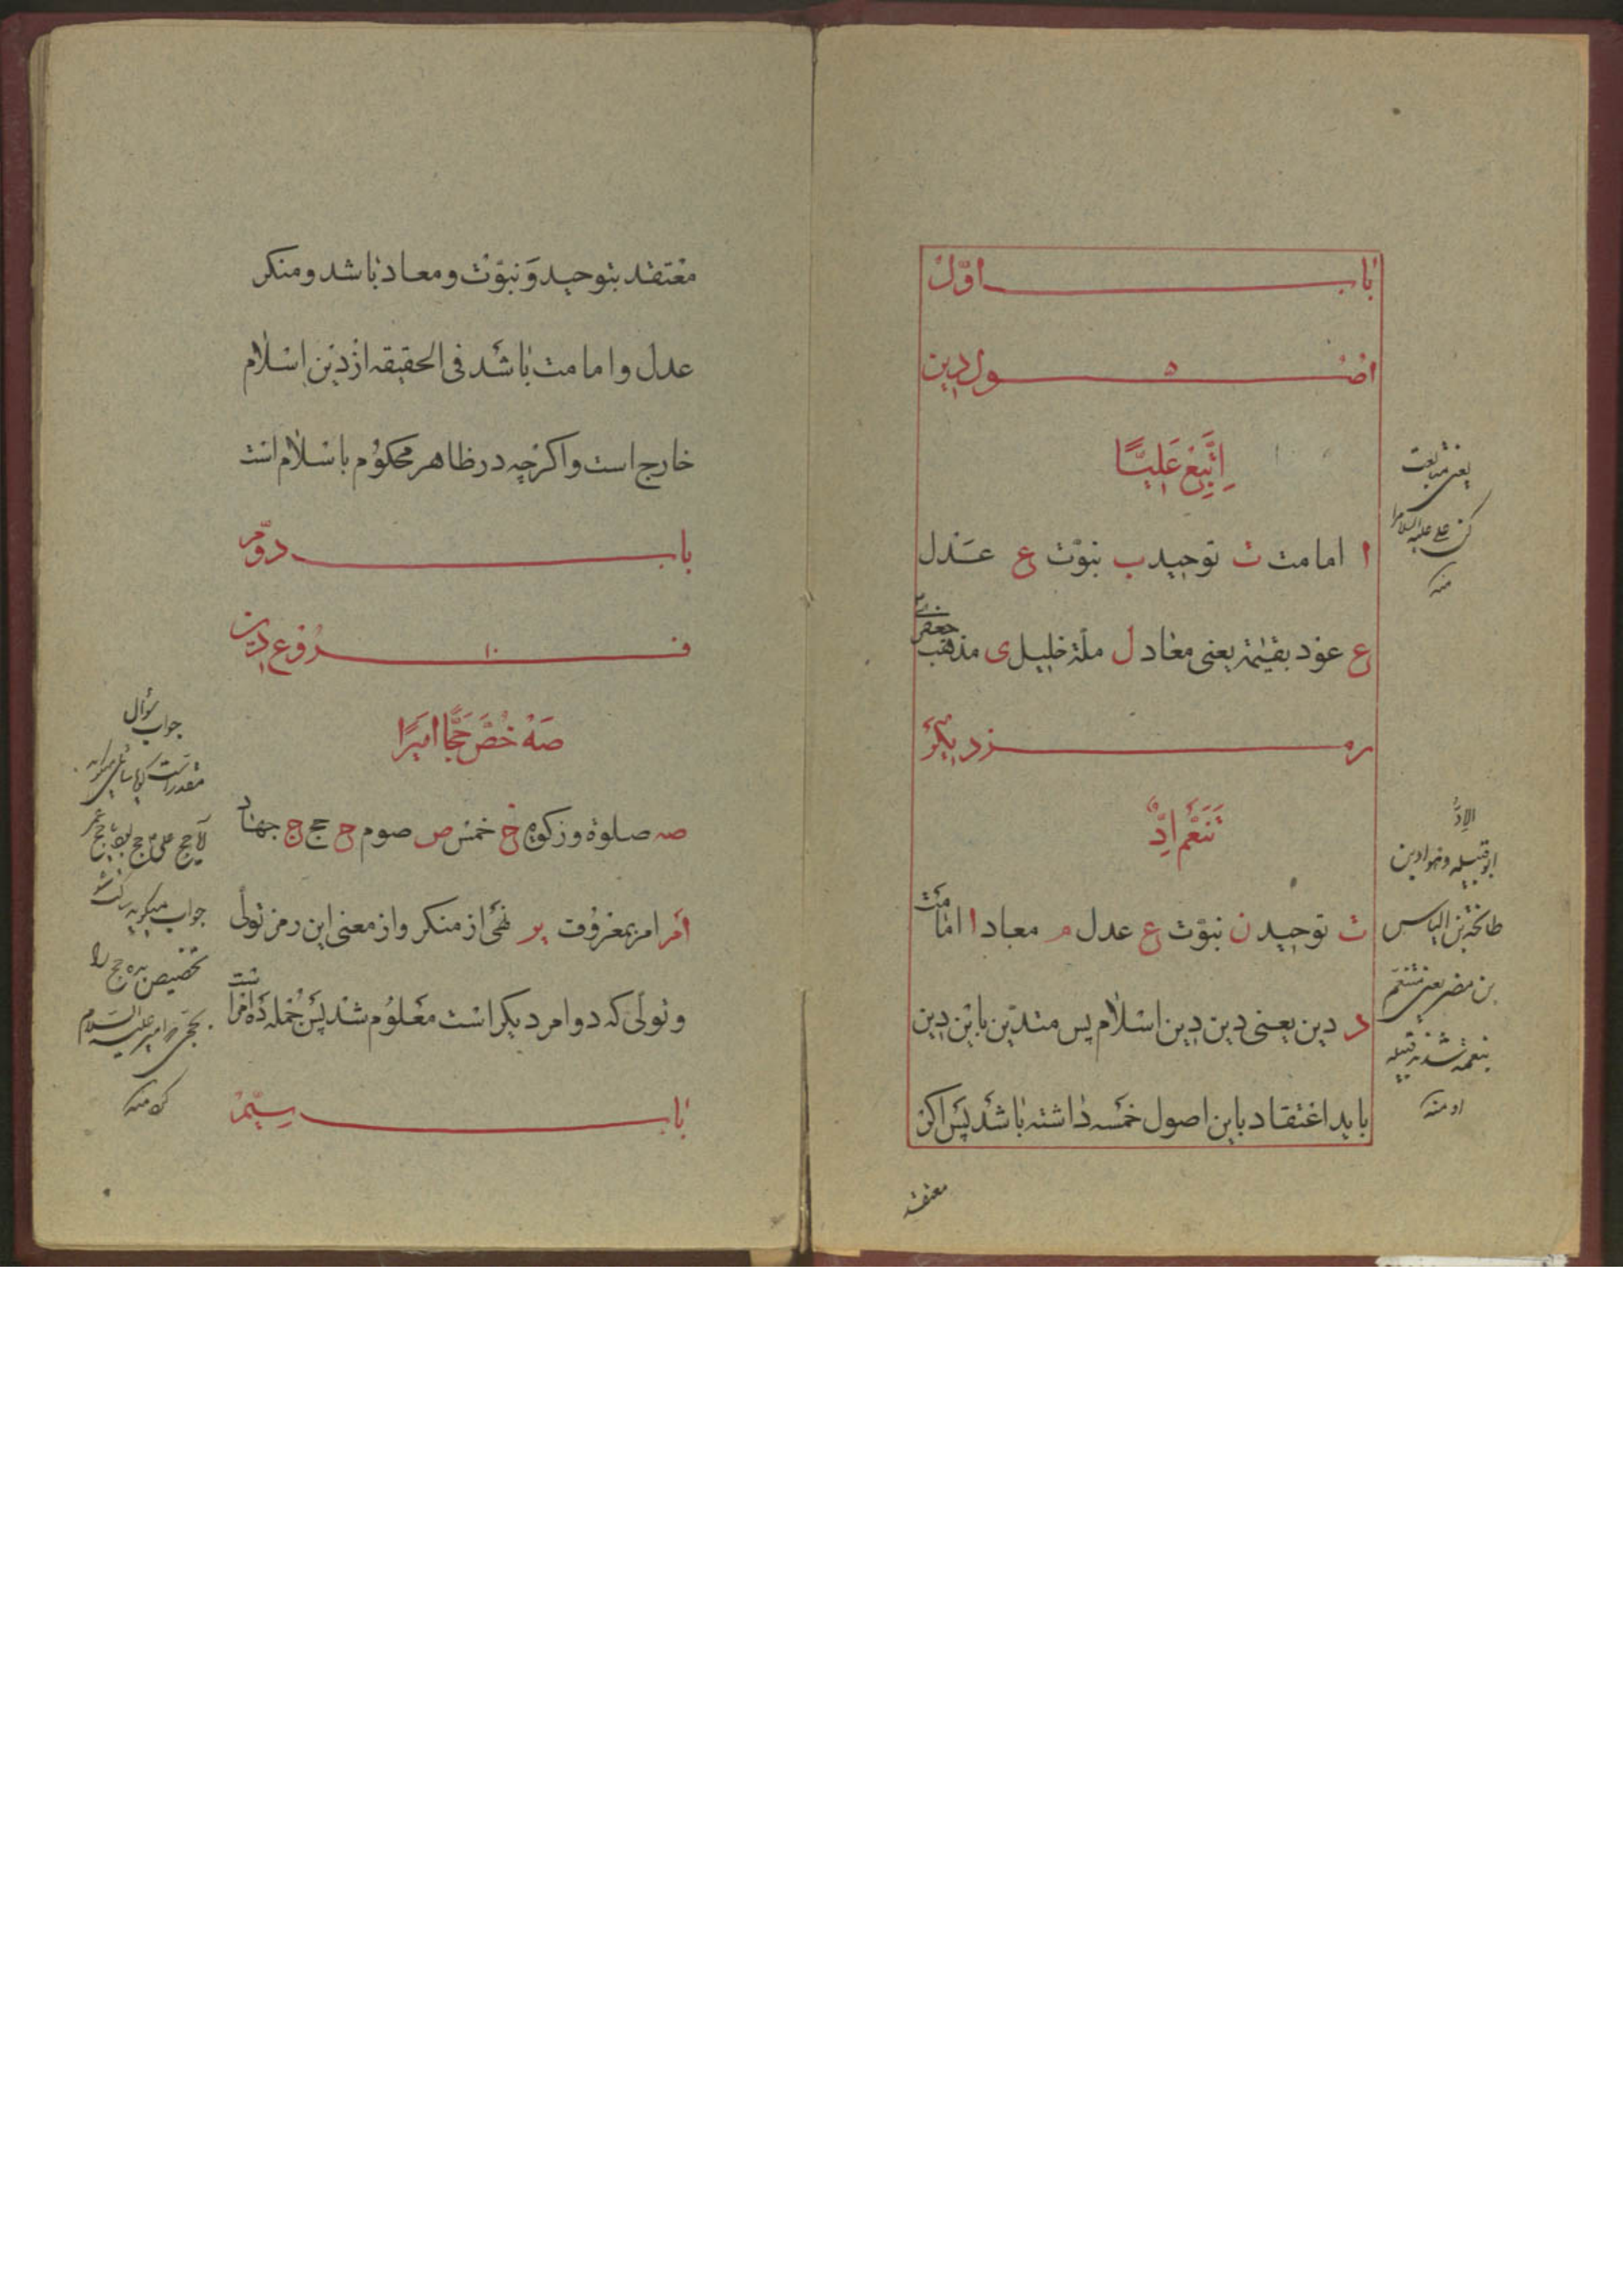 باب اوّل
اصول دین ۵
اِتَّبِعْ عَلِیًّا
ا امامت ت توحید ب نبوّت ع عدل
ع عود بقیٰمة یعنی معاد ل ملّة خلیل ی مذهب جعفری
رمز دیگر
تَنَعَّم اِدٍّ
ت توحید ن نبوّت ع عدل م معاد ا امامت
د دین یعنی دین دین اسلام پس متدیّن باین دین
باید اعتقاد باین اصول خمسه داشته باشد پس اکر
معتقد
یعنی متابعت
کن علی علیه السلام را
منه
الاِدُّ
ابو قبیله و هو اد بن
طابخة بن الیاس
بن مضر یعنی متنعّم
بنعمه شد قبیله
او منه
معتقد بتوحید و نبوّت و معاد باشد و منکر
عدل و امامت باشد فی الحقیقه از دین اسلام
خارج است و اکر چه در ظاهر محکوم باسلام است
باب دوّم
فروع دین ۱۰
صَهْ خُصَّ حَجًّا امیرًا
صه صلوة و زکوة خ خمس ص صوم ح حج ج جهاد
امر امر بمعروف یر نهی از منکر و از معنی این رمز تولّی
و تولّی که دو امر دیکر است معلوم شد پس جمله ده امر است
باب سیّم
جواب سؤال
مقدر است کویا سائل میکوید
جواب میکوید ساکت شو
تخصیص بده حج را
بحجّ امیر علیه السلام
منه